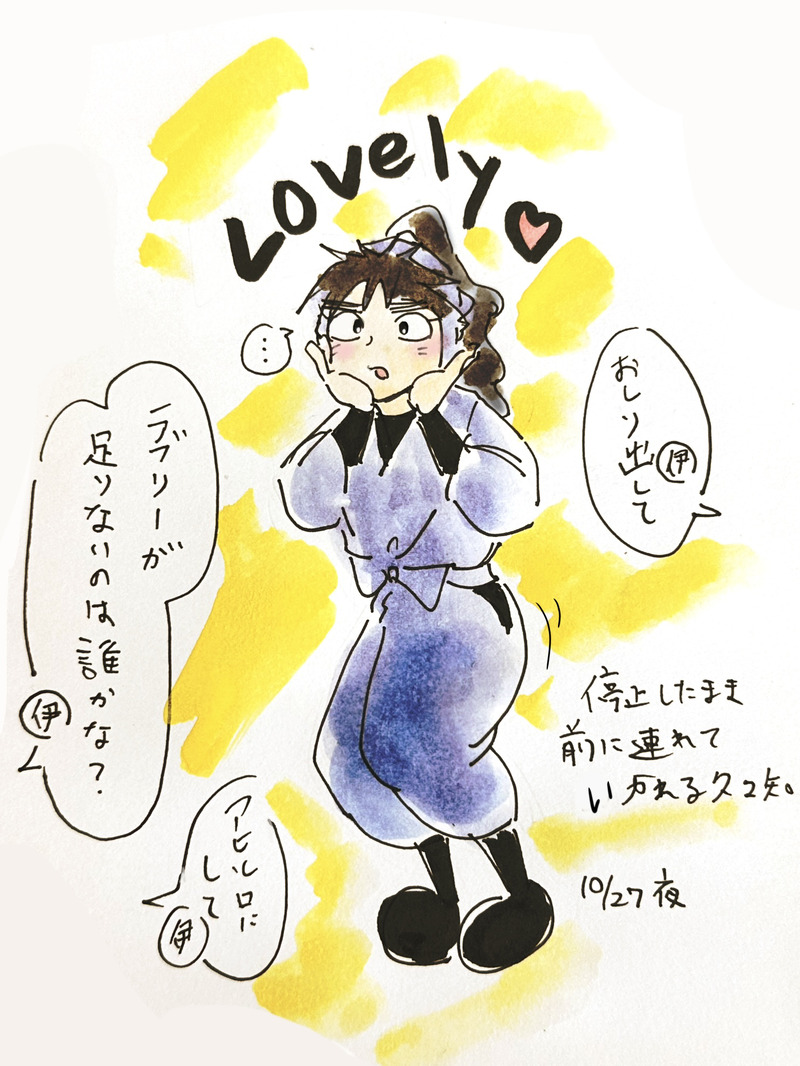 Lovely
…
おしり出して
伊
ラブリーが
足りないのは誰かな？
伊
アヒル口に
して
伊
停止したまま
前に連れて
いかれる久々知。
10/27 夜